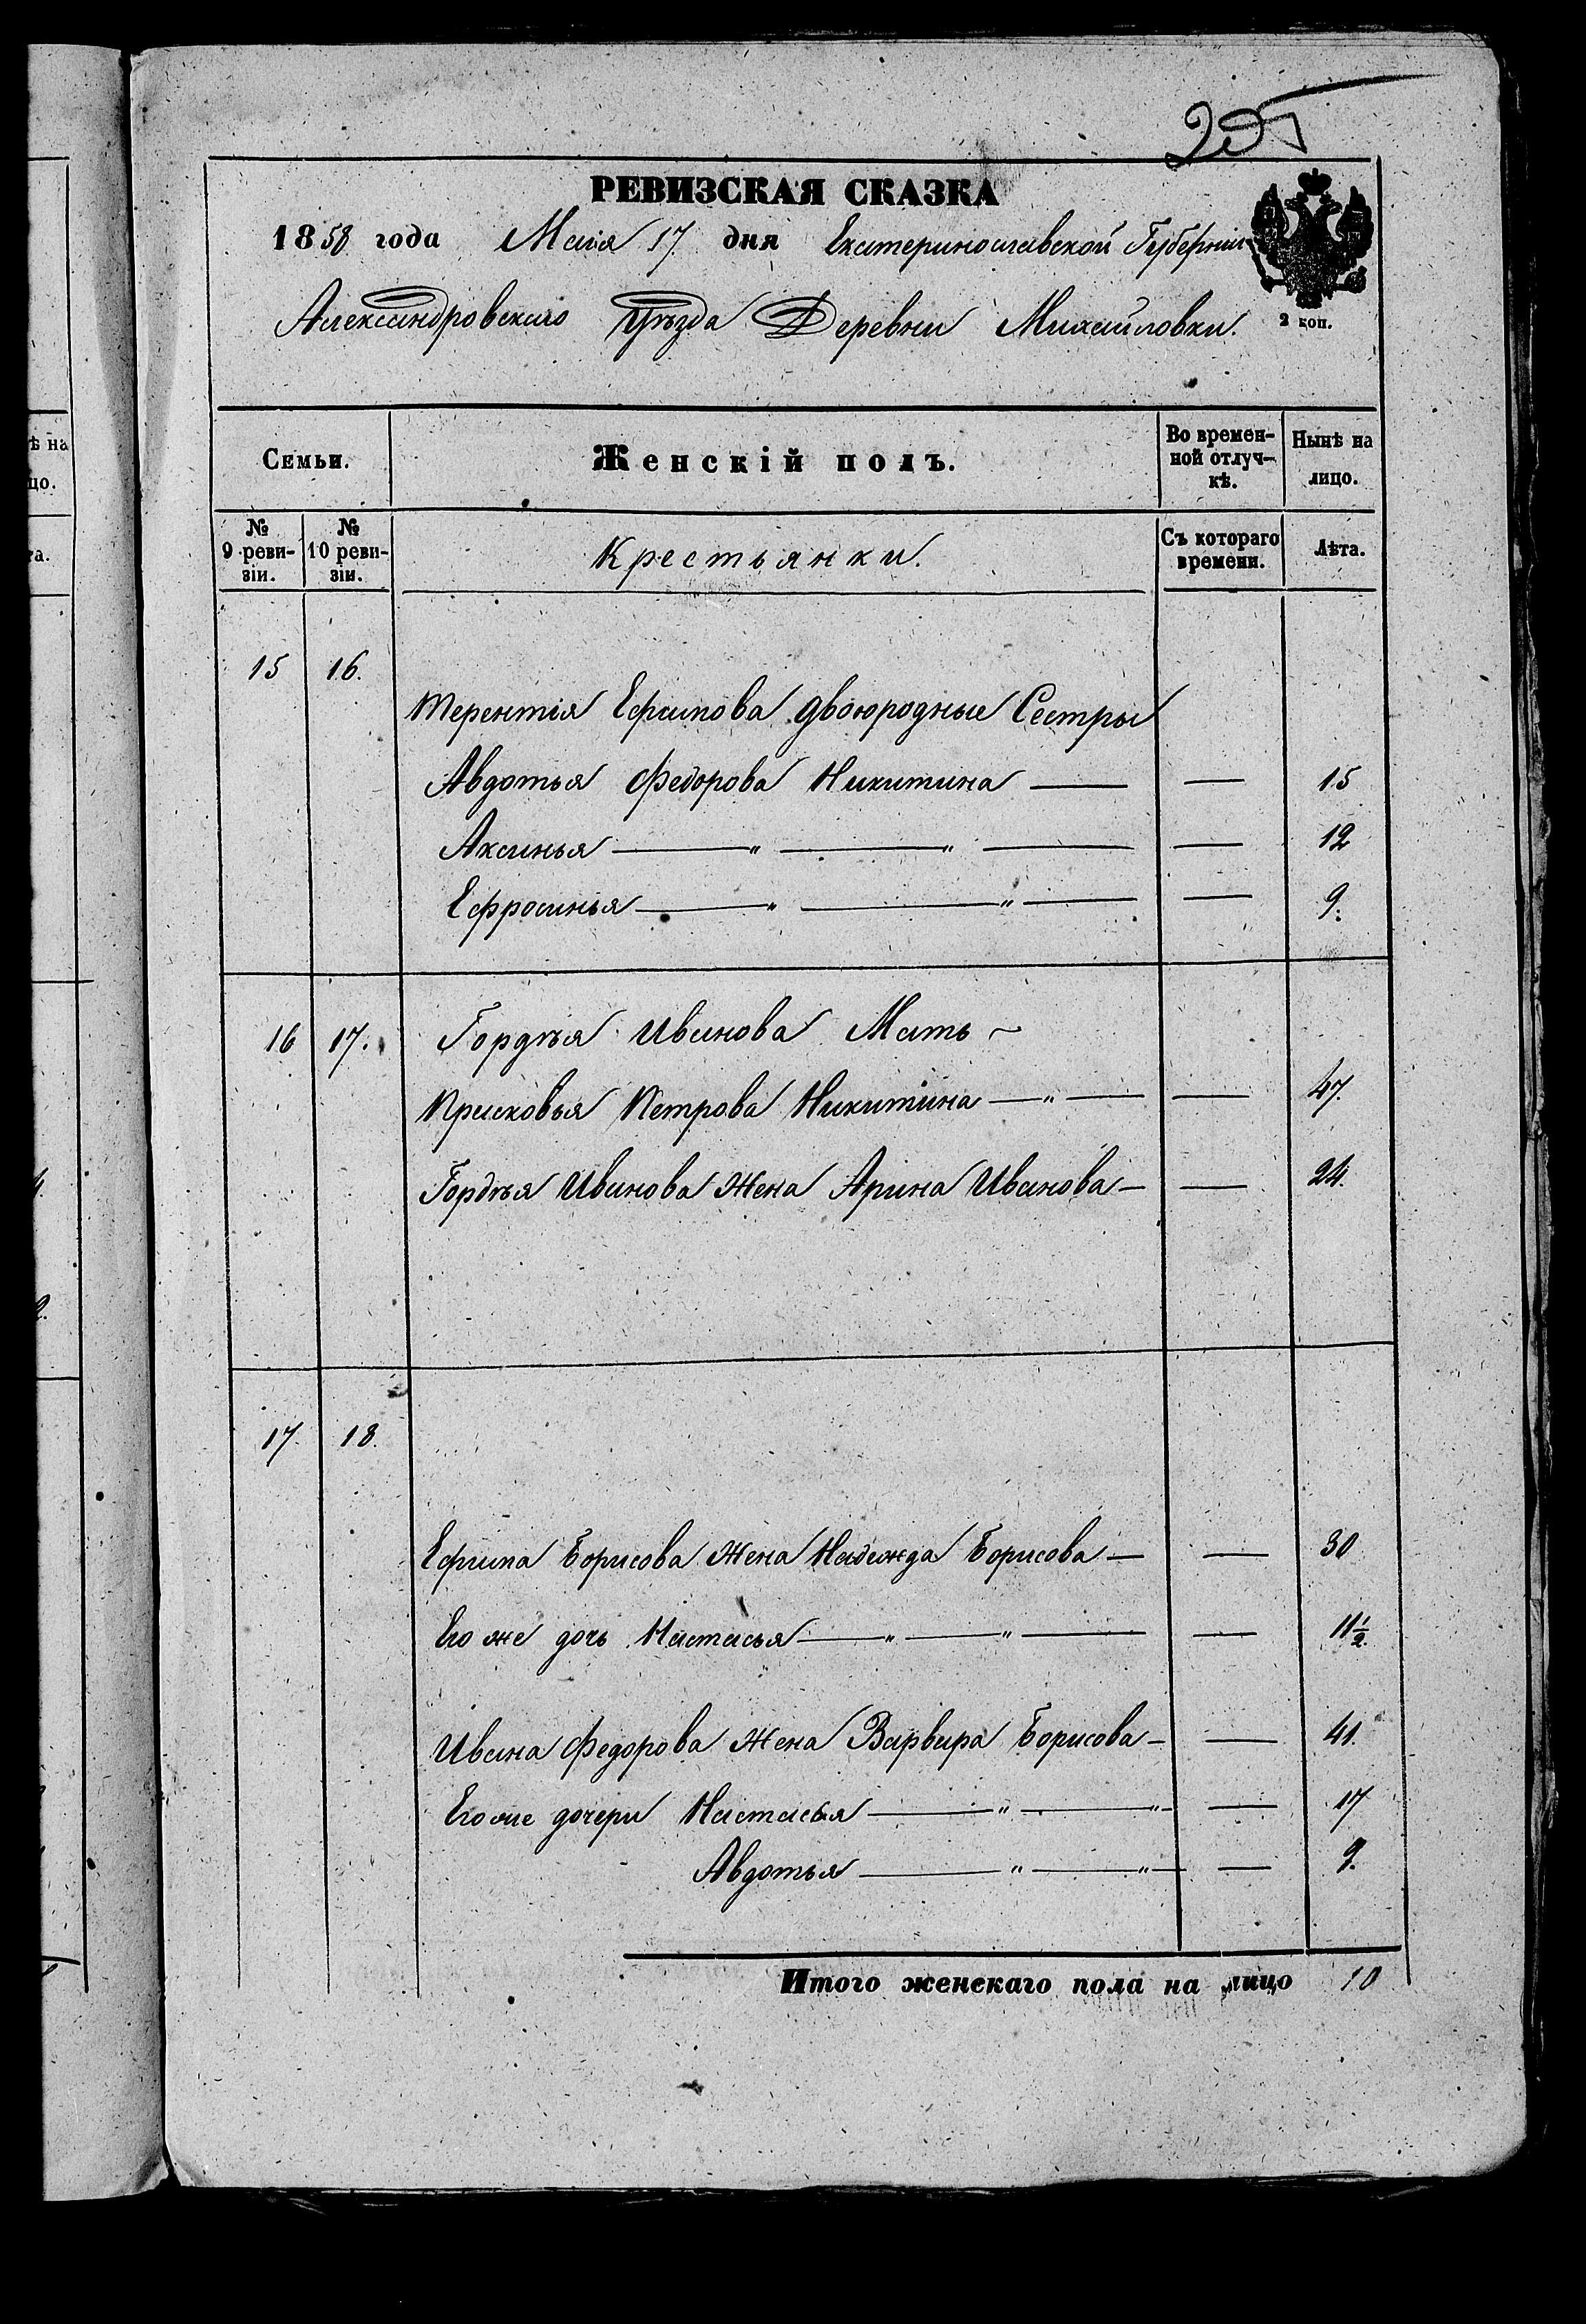 РЕВИЗСКАЯ СКАЗКА
1858 года Маія 17 дня Екатеринославской Губерніи
Александровскаго Уѣзда Деревни Михайловки.
2 коп.
Семьи.
Женскій полъ.
Во времен-
ной отлуч-
кѣ.
Нынѣ на
лицо.
№
9 реви-
зіи.
№
10 реви-
зіи.
Крестьянки.
Съ котораго
времени.
Лѣта.
15 16.
Терентія Ефимова двоюродные Сестры
Авдотья Федорова Никитина — — 15
Аксинья — " — " — — 12
Ефросинья — " — " — — 9.
16 17. Гордѣя Иванова Мать ~
Прасковья Петрова Никитина — " — — 47.
Гордѣя Иванова Жена Арина Иванова — — 24.
17. 18.
Ефима Борисова Жена Надежда Борисова — — 30
Его же дочь Настасья — " — " — — 11½.
Ивана Федорова Жена Варвара Борисова — — 41.
Его же дочери Настасья — " — " — — 17
Авдотья — " — " — — 9.
Итого женскаго пола на лицо 10
ѣ на
цо.
та.